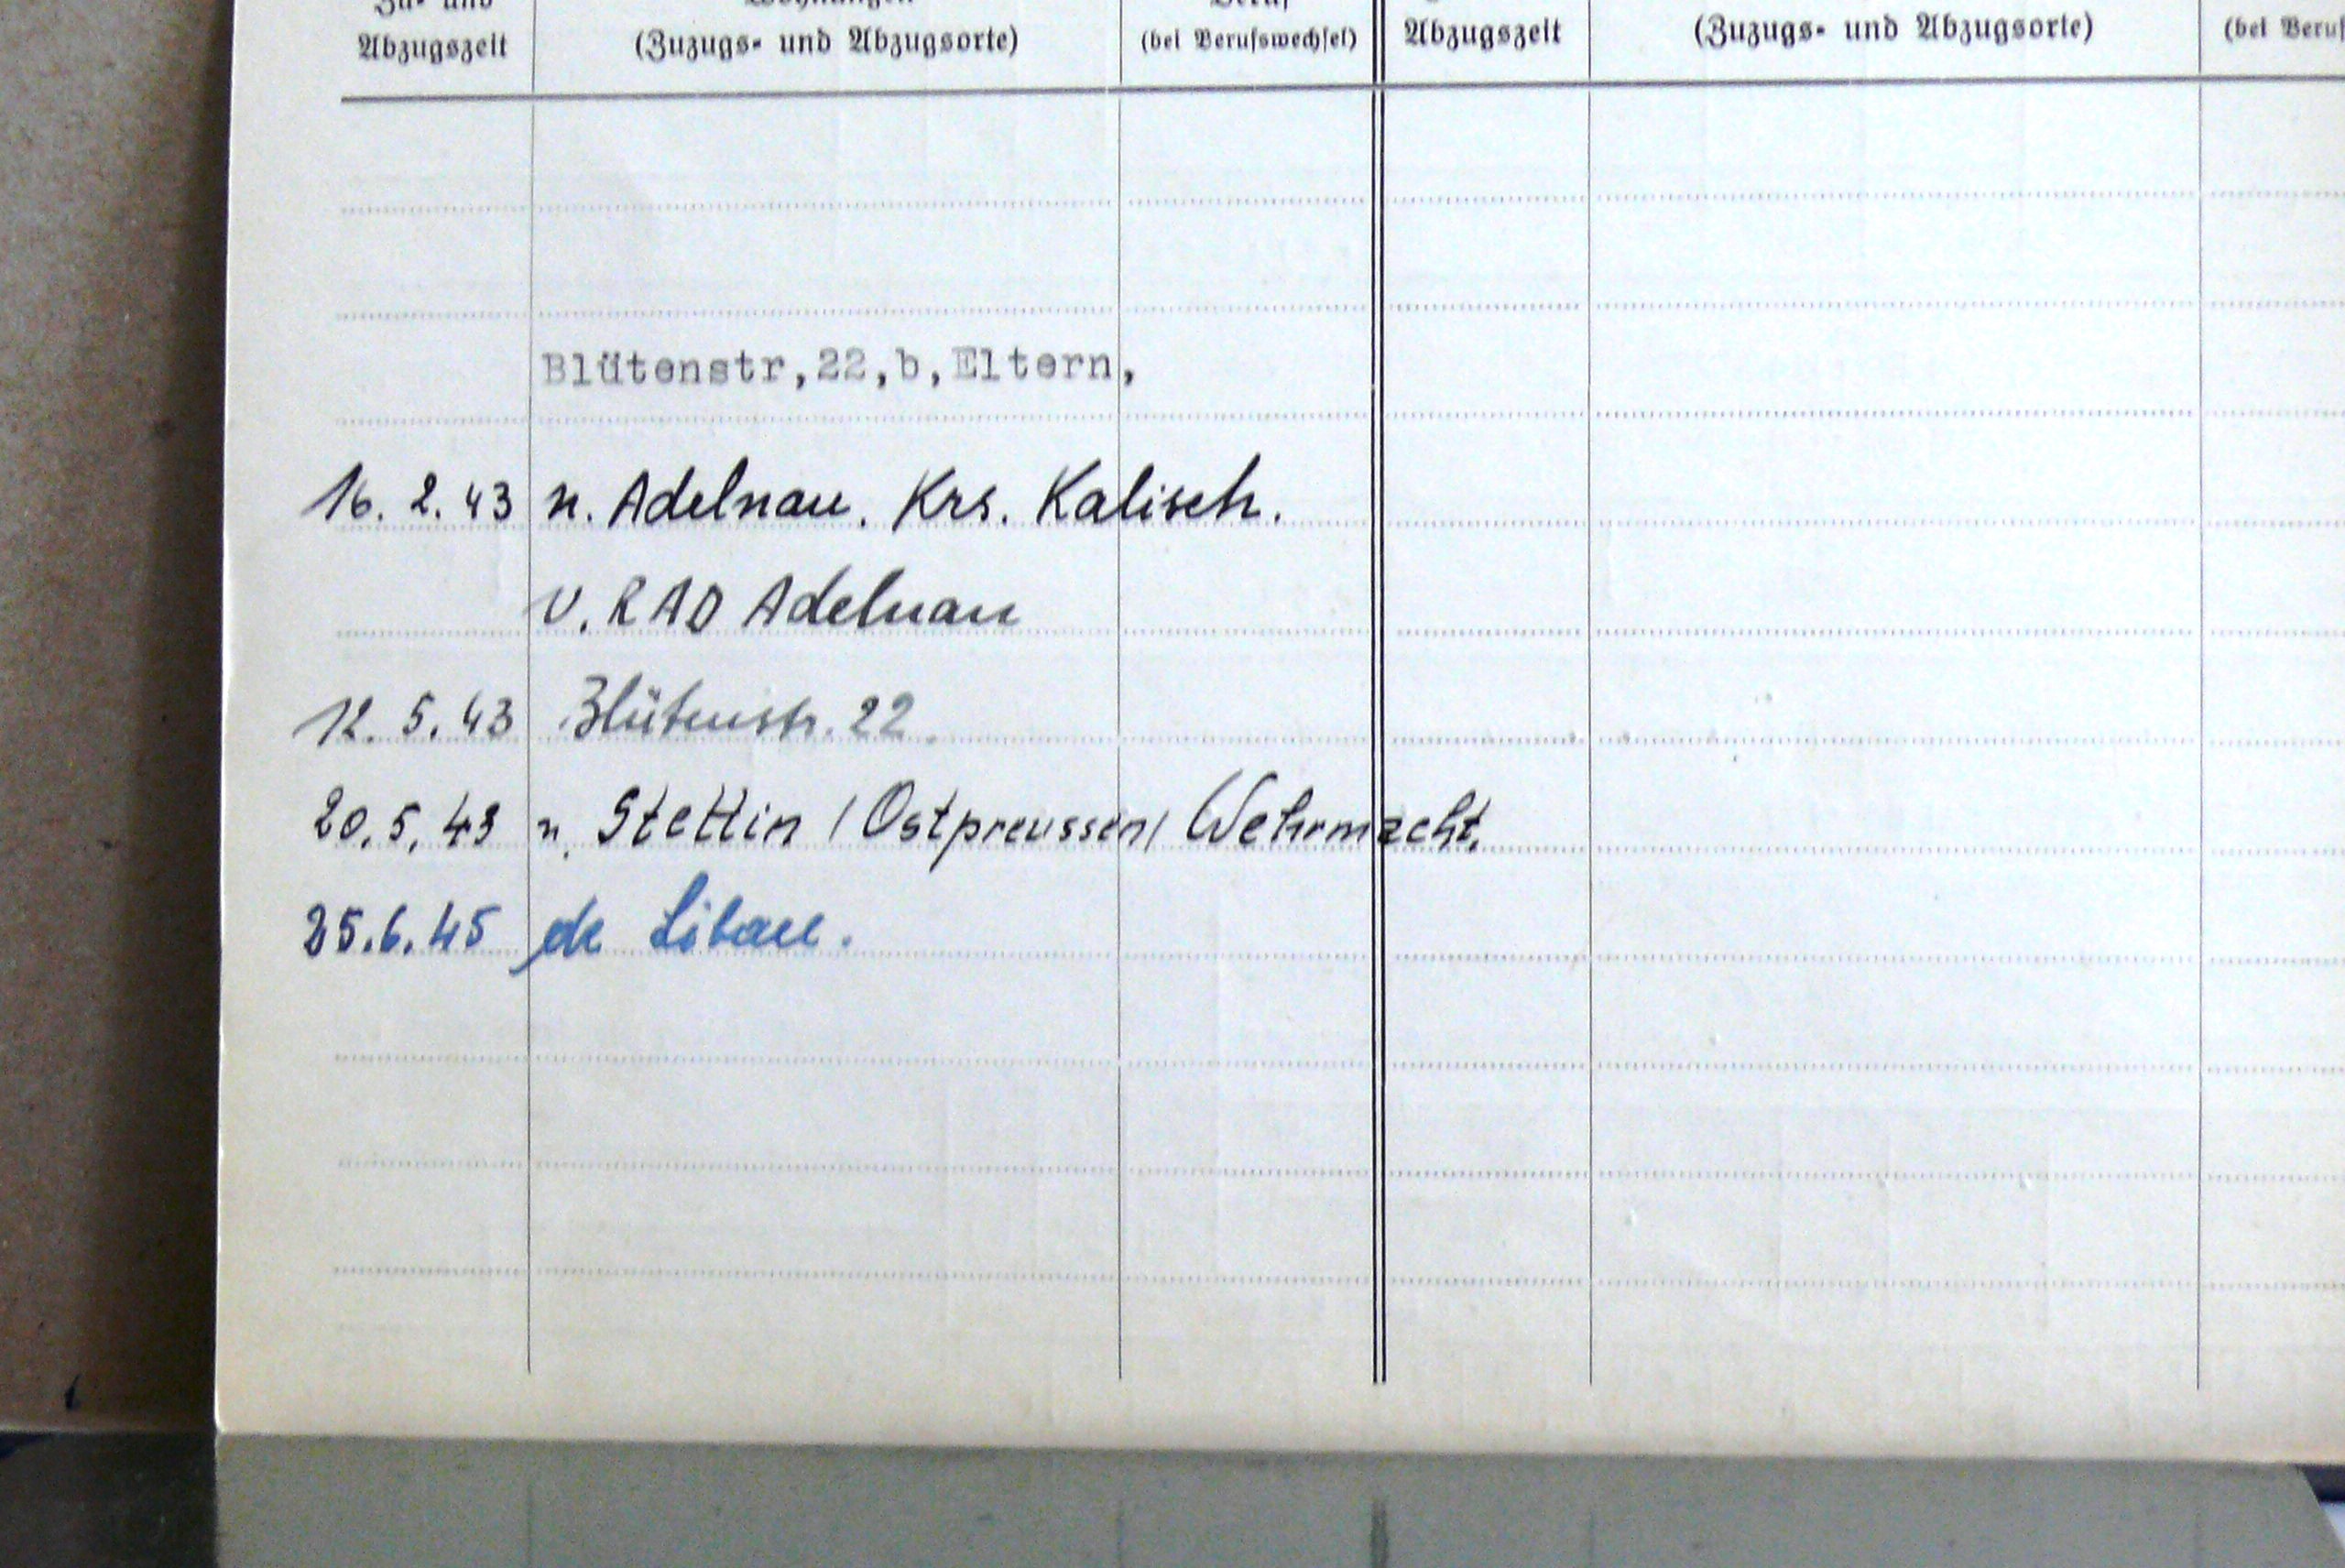 Zu- und
Wohnungen
Beruf
Abzugszeit
(Zuzugs- und Abzugsorte)
(bei Berufswechsel)
Abzugszeit
(Zuzugs- und Abzugsorte)
(bei Beruf
Blütenstr,22,b,Eltern,
16. 2. 43 n. Adelnau. Krs. Kalisch.
v. RAD Adelnau
12. 5. 43 Blütenstr. 22.
20. 5. 43 n. Stettin (Ostpreussen) Wehrmacht.
25.6.45 de Libau.